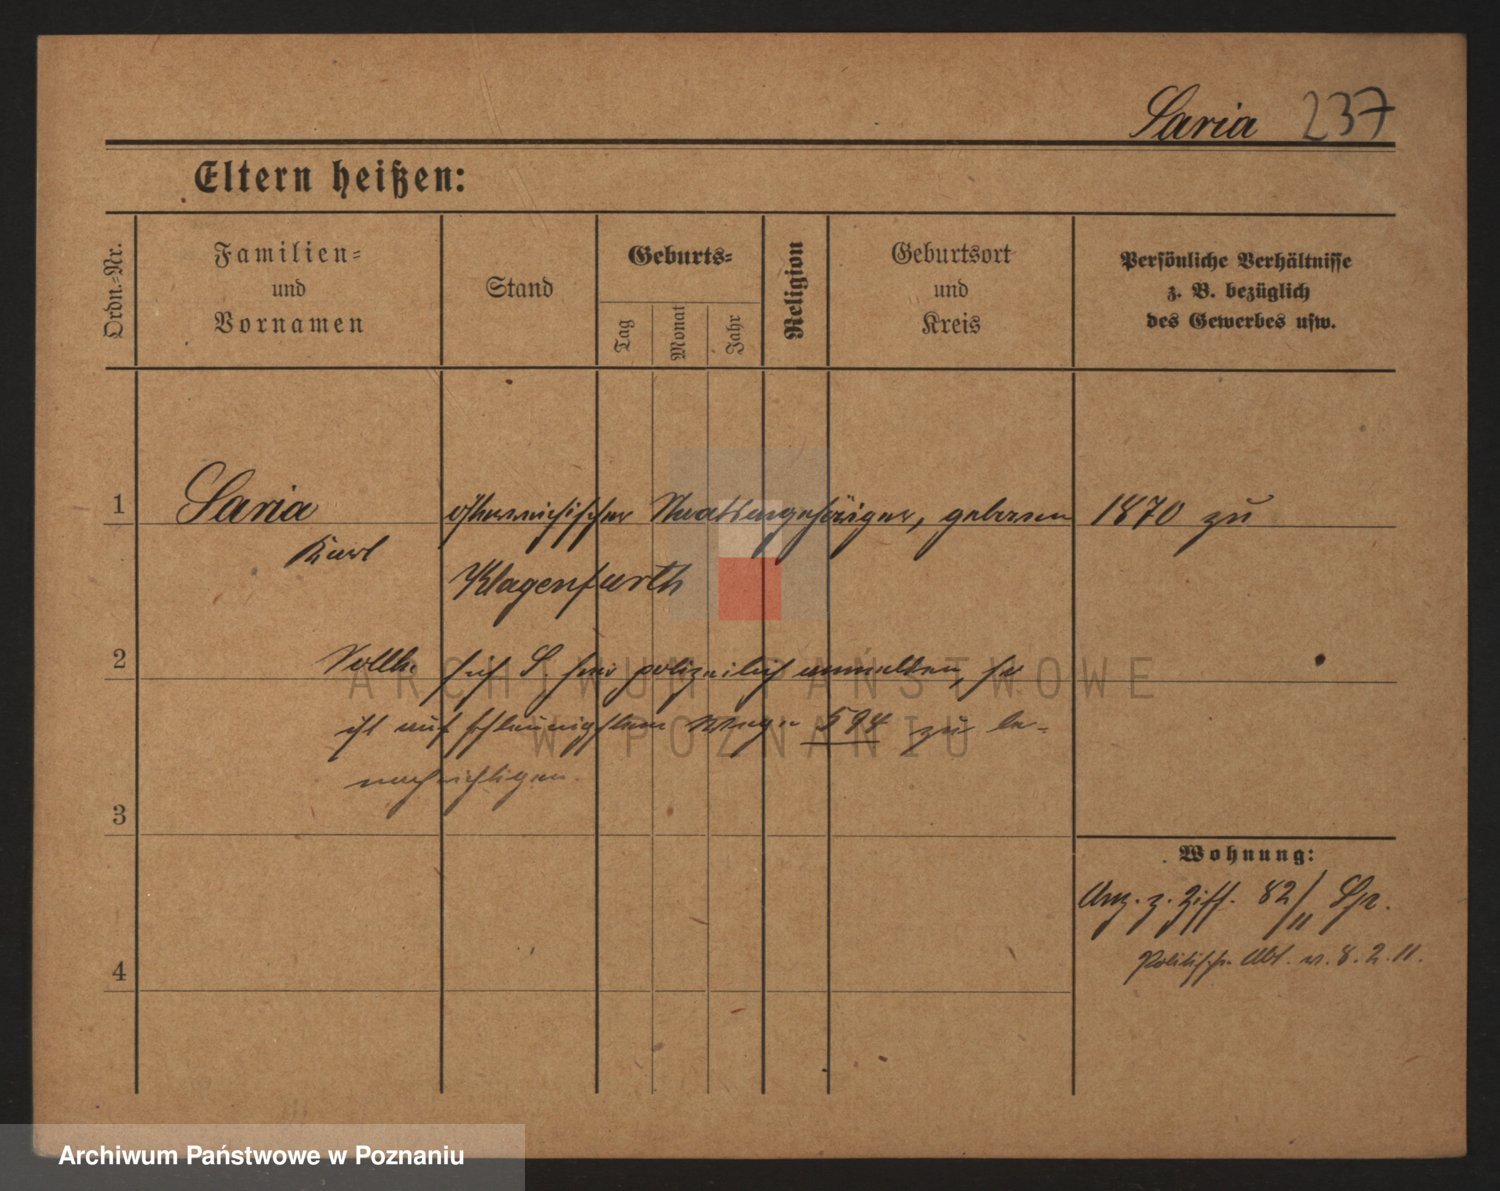 Saria 237
Eltern heißen:
Ordn.-Nr.
Familien-
und
Vornamen
Stand
Geburts-
Tag
Monat
Jahr
Religion
Geburtsort
und
Kreis
Persönliche Verhältnisse
z. B. bezüglich
des Gewerbes usw.
1 Saria österreichischer Staatsangehöriger, geboren 1870 zu
Karl
Klagenfurth
2 Sollte sich S. hier polizeilich anmelden, so
ist auf schleunigstem Wege 594 zu be-
nachrichtigen.
3
Wohnung:
Ang. z. Ziff. 82/11
4
Politische Abt. v. 8.2.11.
ARCHIWUM PAŃSTWOWE
W POZNANIU
Archiwum Państwowe w Poznaniu